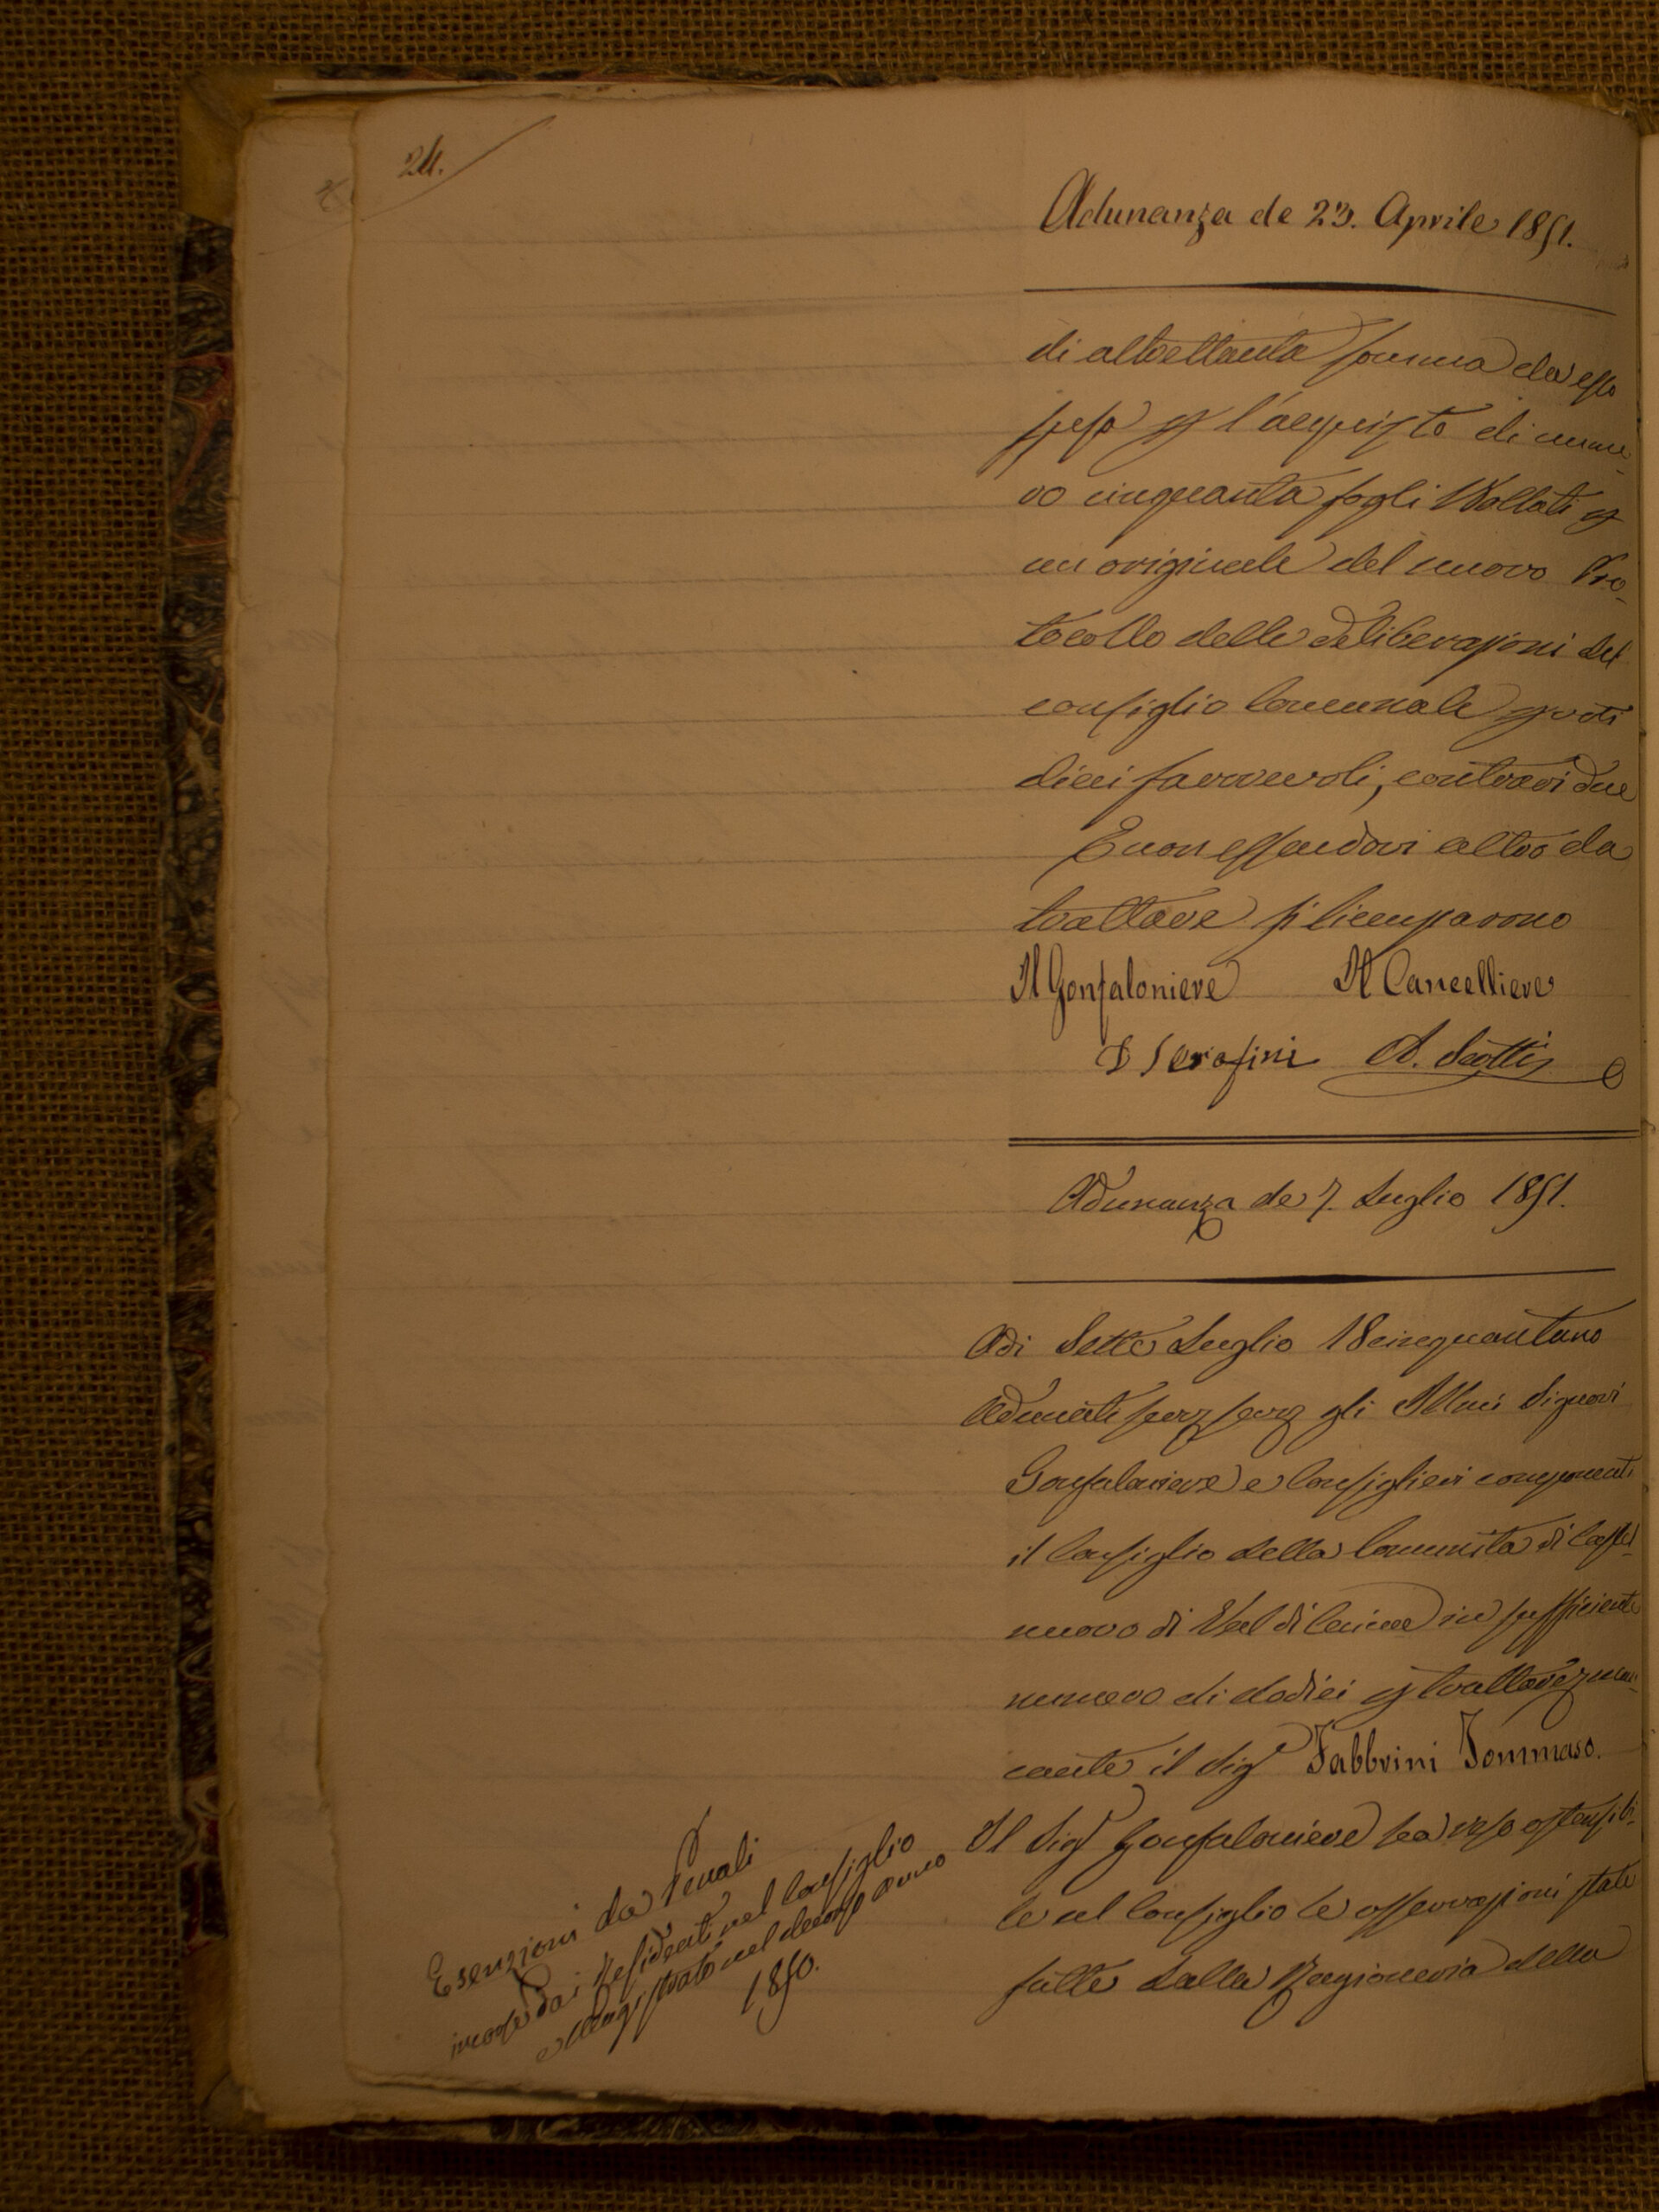 24.
Adunanza de 23. Aprile 1851.
di altrettanta somma da esso
speso p l'acquisto di nume-
ro cinquanta fogli Bollati p
un originale del nuovo Pro-
tocollo delle deliberazioni del
consiglio Comunale p voti
dieci favorevoli, contrari due
E non essendovi altro da
trattare si licenziarono
Il Gonfaloniere Il Cancelliere
Serafini A. Scotti
Adunanza de 7. Luglio 1851.
Adi Sette Luglio 18cinquantuno
Adunati serv serv gli Illmi Signori
Gonfaloniere e Consiglieri componenti
il Consiglio della Comunità di Castel-
nuovo di Val di Cecina in sufficiente
numero di dodici p trattare man-
cante il Sigr Fabbrini Tommaso.
Esenzioni da Penali
incorse dai Residenti nel Consiglio
e Magistrato nel decorso Anno
1850.
Il Sigr Gonfaloniere ha reso ostensibi-
le al Consiglio le osservazioni state
fatte dalla Ragioneria della